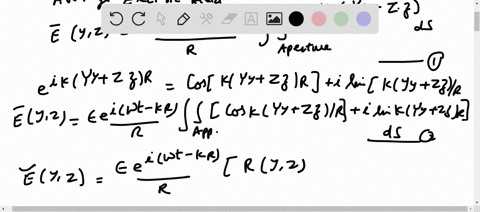 Ē(y,z) = R ∫∫ Aperture Z.z) ds
①
e^{ik(Yy+Zz)R} = Cos[k(Yy+Zz)R] + i Sin[k(Yy+Zz)/R
Ē(y,z) = ϵ e^{i(ωt-kR)}/R ∫∫_{App.} [Cosk(Yy+Zz)/R] + i Sin k(Yy+Zz)R] ds ②
Ẽ(y,z) = ϵ e^{i(ωt-kR)}/R [R(y,z)